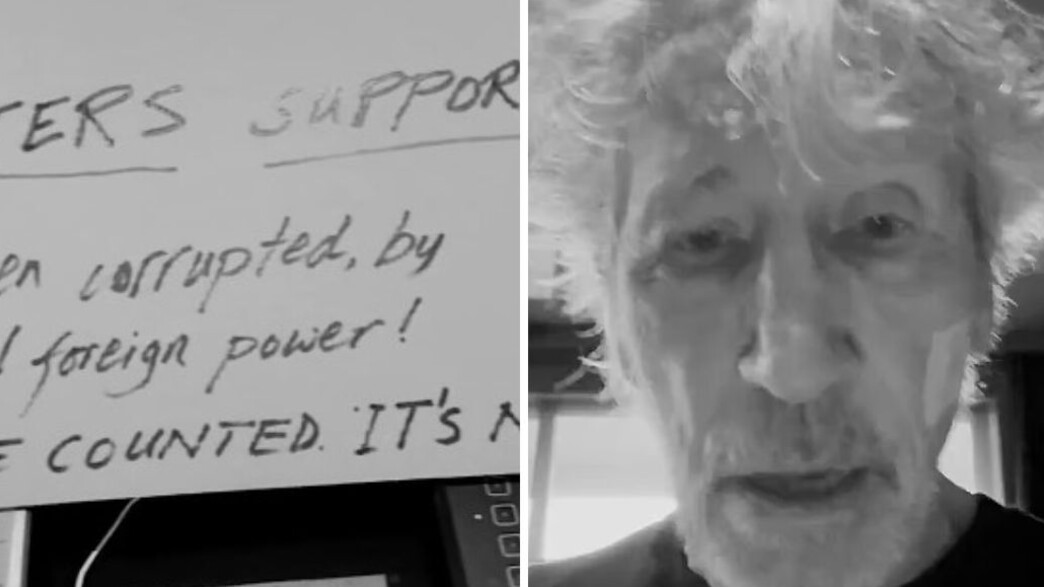 TERS SUPPOR
en corrupted, by
foreign power!
E COUNTED. IT'S N